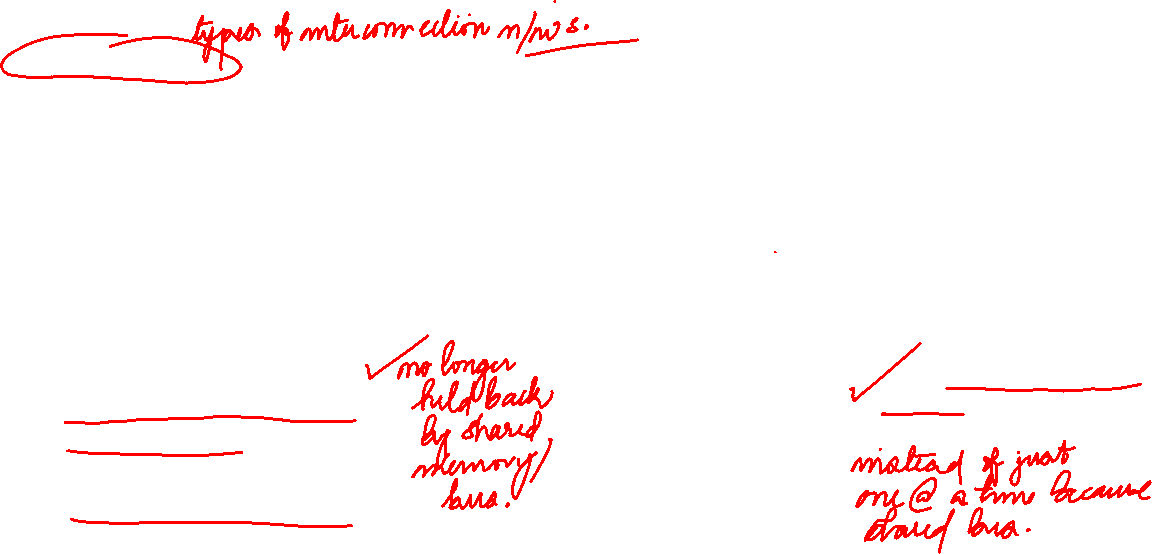 types of interconnection n/ws.
no longer
held back
by shared
memory/
bus.
instead of just
one @ a time because
shared bus.